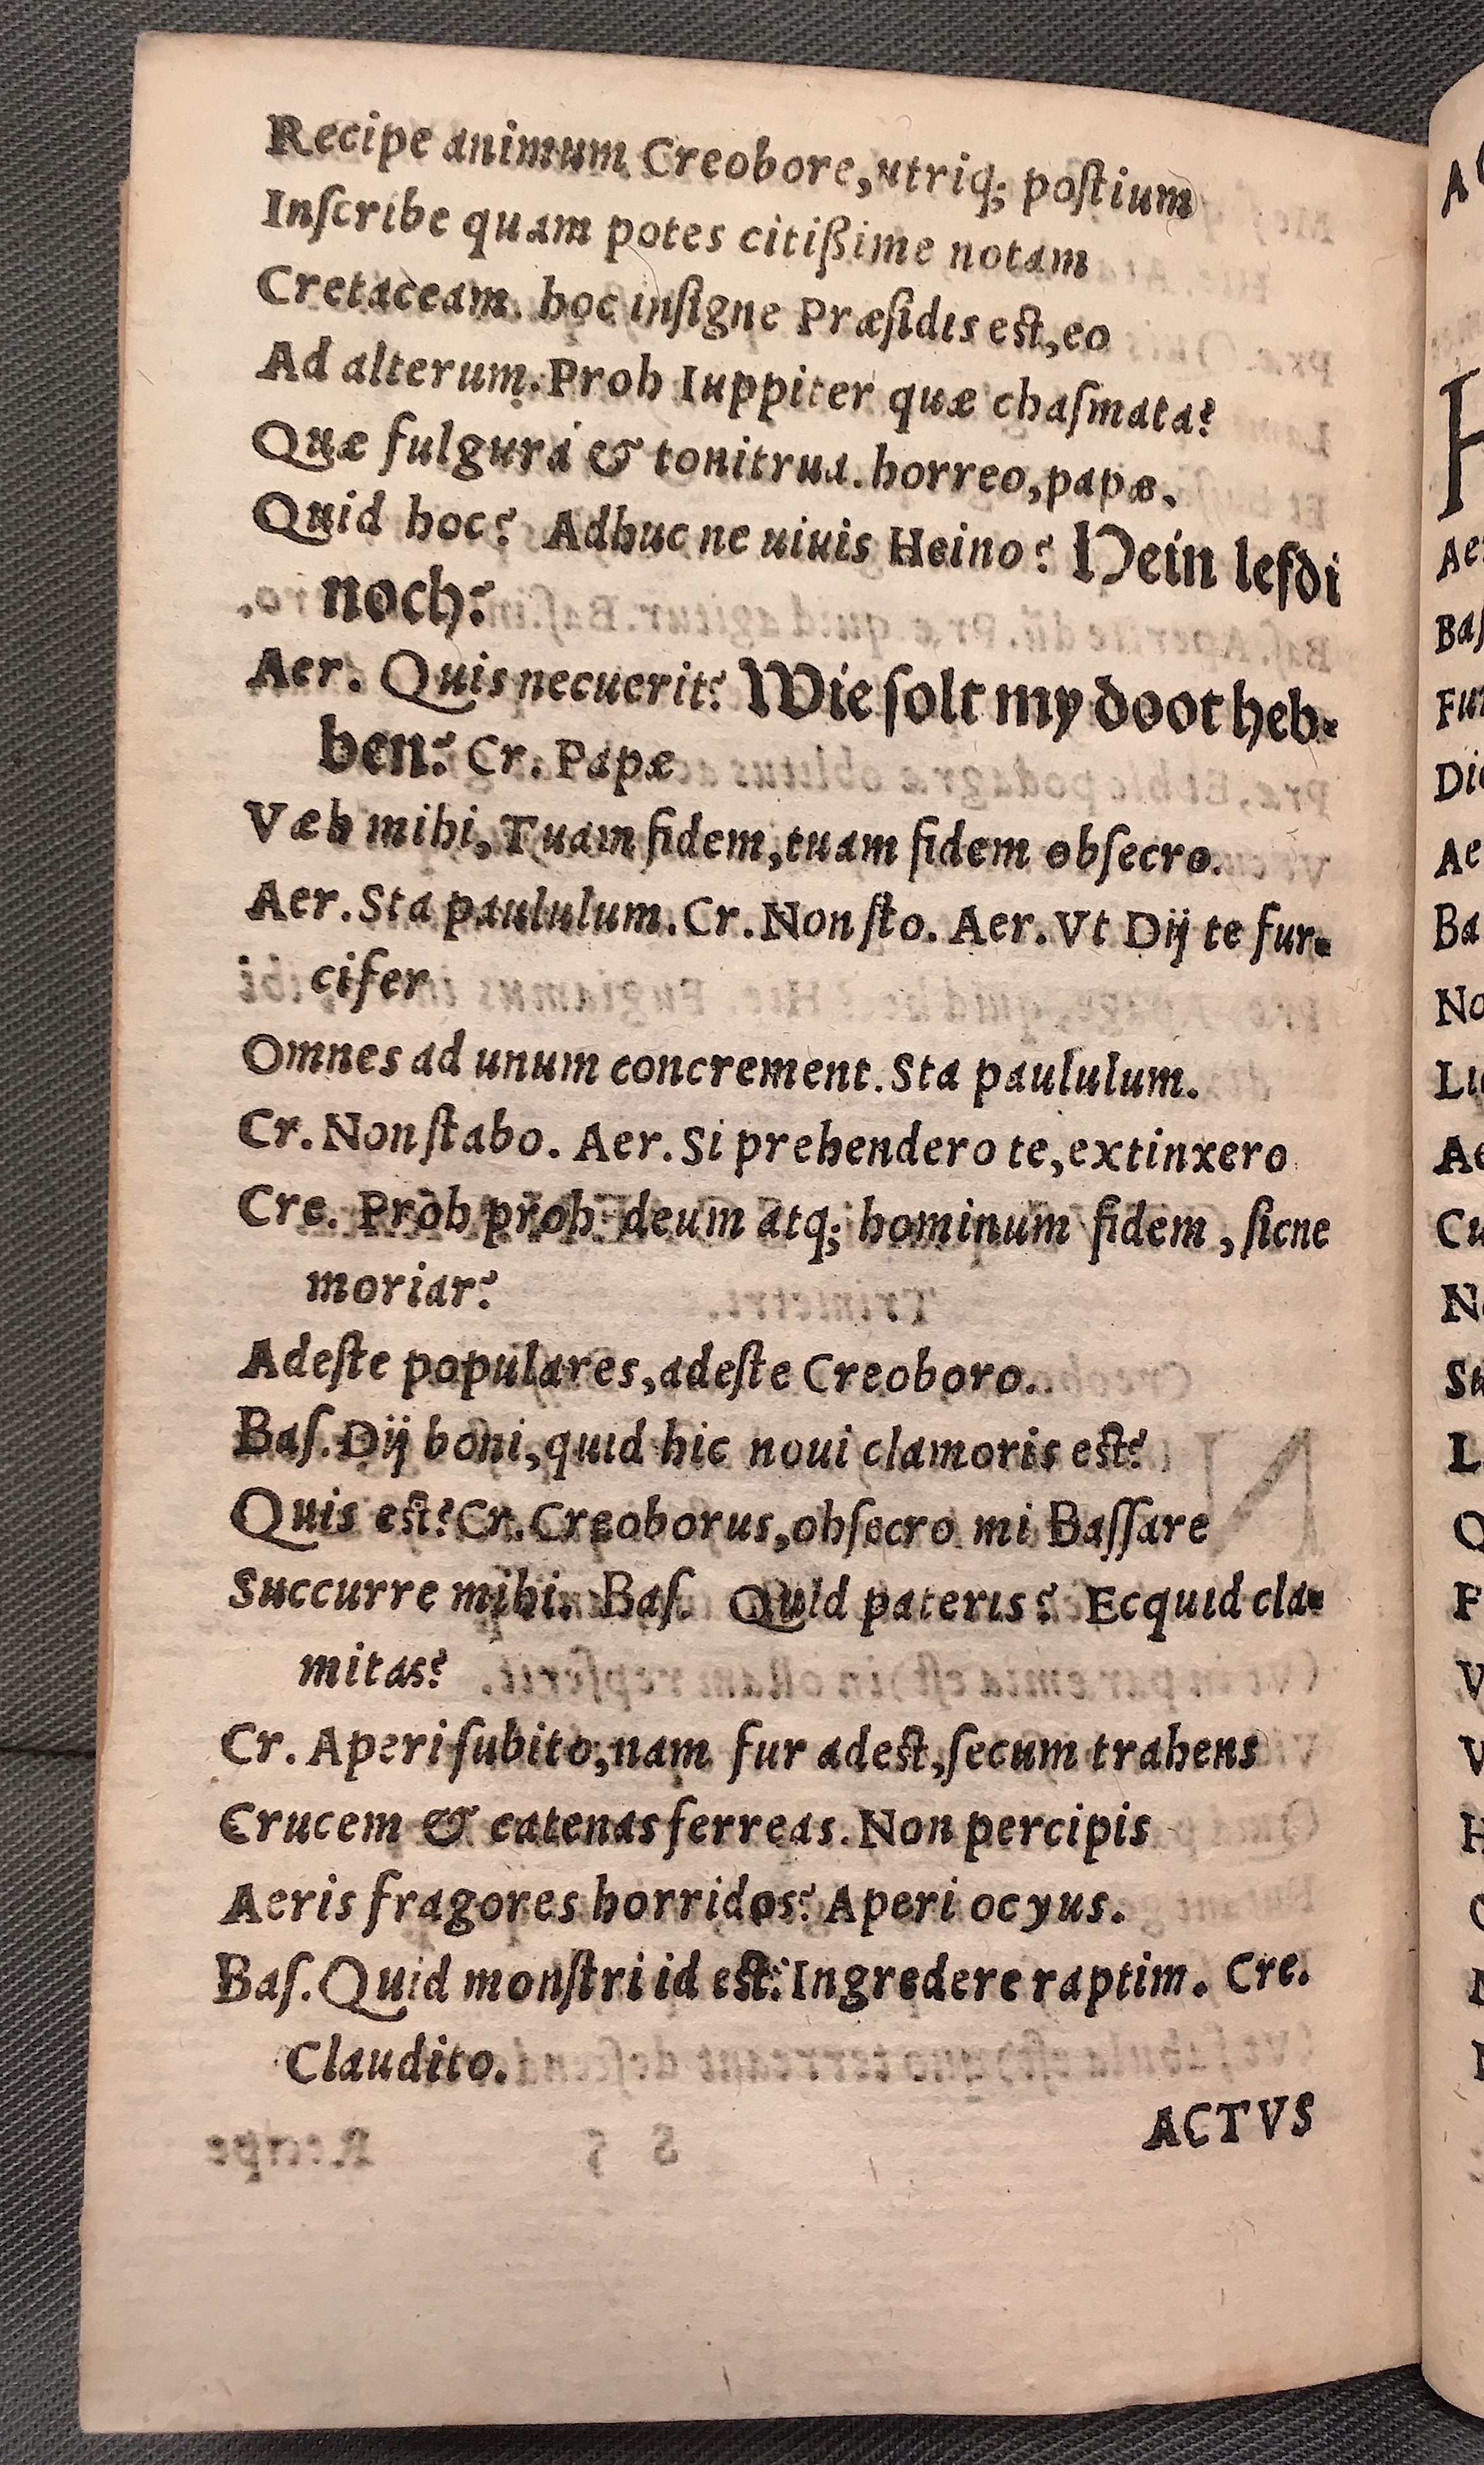 Recipe animum Creobore, utriq; postium
Inscribe quam potes citißime notam
Cretaceam. hoc insigne Præsidis est, eo
Ad alterum. Proh Iuppiter quæ chasmata?
Quæ fulgura & tonitrua. horreo, papæ.
Quid hoc? Adhuc ne uiuis Heino? Hein lefdi
noch?
Aer. Quis necuerit? Wie solt my doot heb-
ben? Cr. Papæ
Væh mihi, Tuam fidem, tuam fidem obsecro.
Aer. Sta paululum. Cr. Non sto. Aer. Vt Dij te fur-
cifer
Omnes ad unum concrement. Sta paululum.
Cr. Non stabo. Aer. Si prehendero te, extinxero
Cre. Proh proh deum atq; hominum fidem, sicne
moriar?
Adeste populares, adeste Creoboro.
Bas. Dij boni, quid hic noui clamoris est?
Quis est? Cr. Creoborus, obsecro mi Bassare
Succurre mihi. Bas. Quid pateris? Ecquid cla-
mitas?
Cr. Aperi subito, nam fur adest, secum trahens
Crucem & catenas ferreas. Non percipis
Aeris fragores horridos? Aperi ocyus.
Bas. Quid monstri id est? Ingredere raptim. Cre.
Claudito.
ACTVS